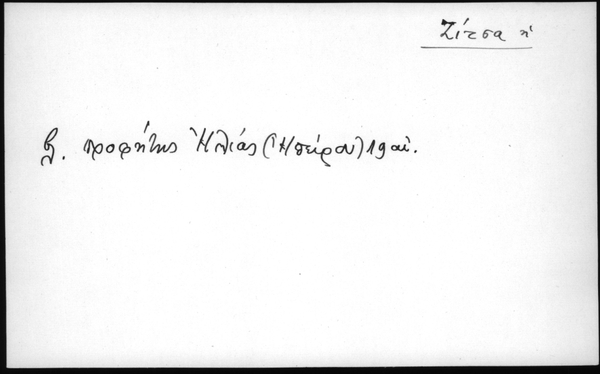 Ζίτσα ἡ
βλ. προφήτης Ἠλίας (Ἠπείρου) 19 αἰ.